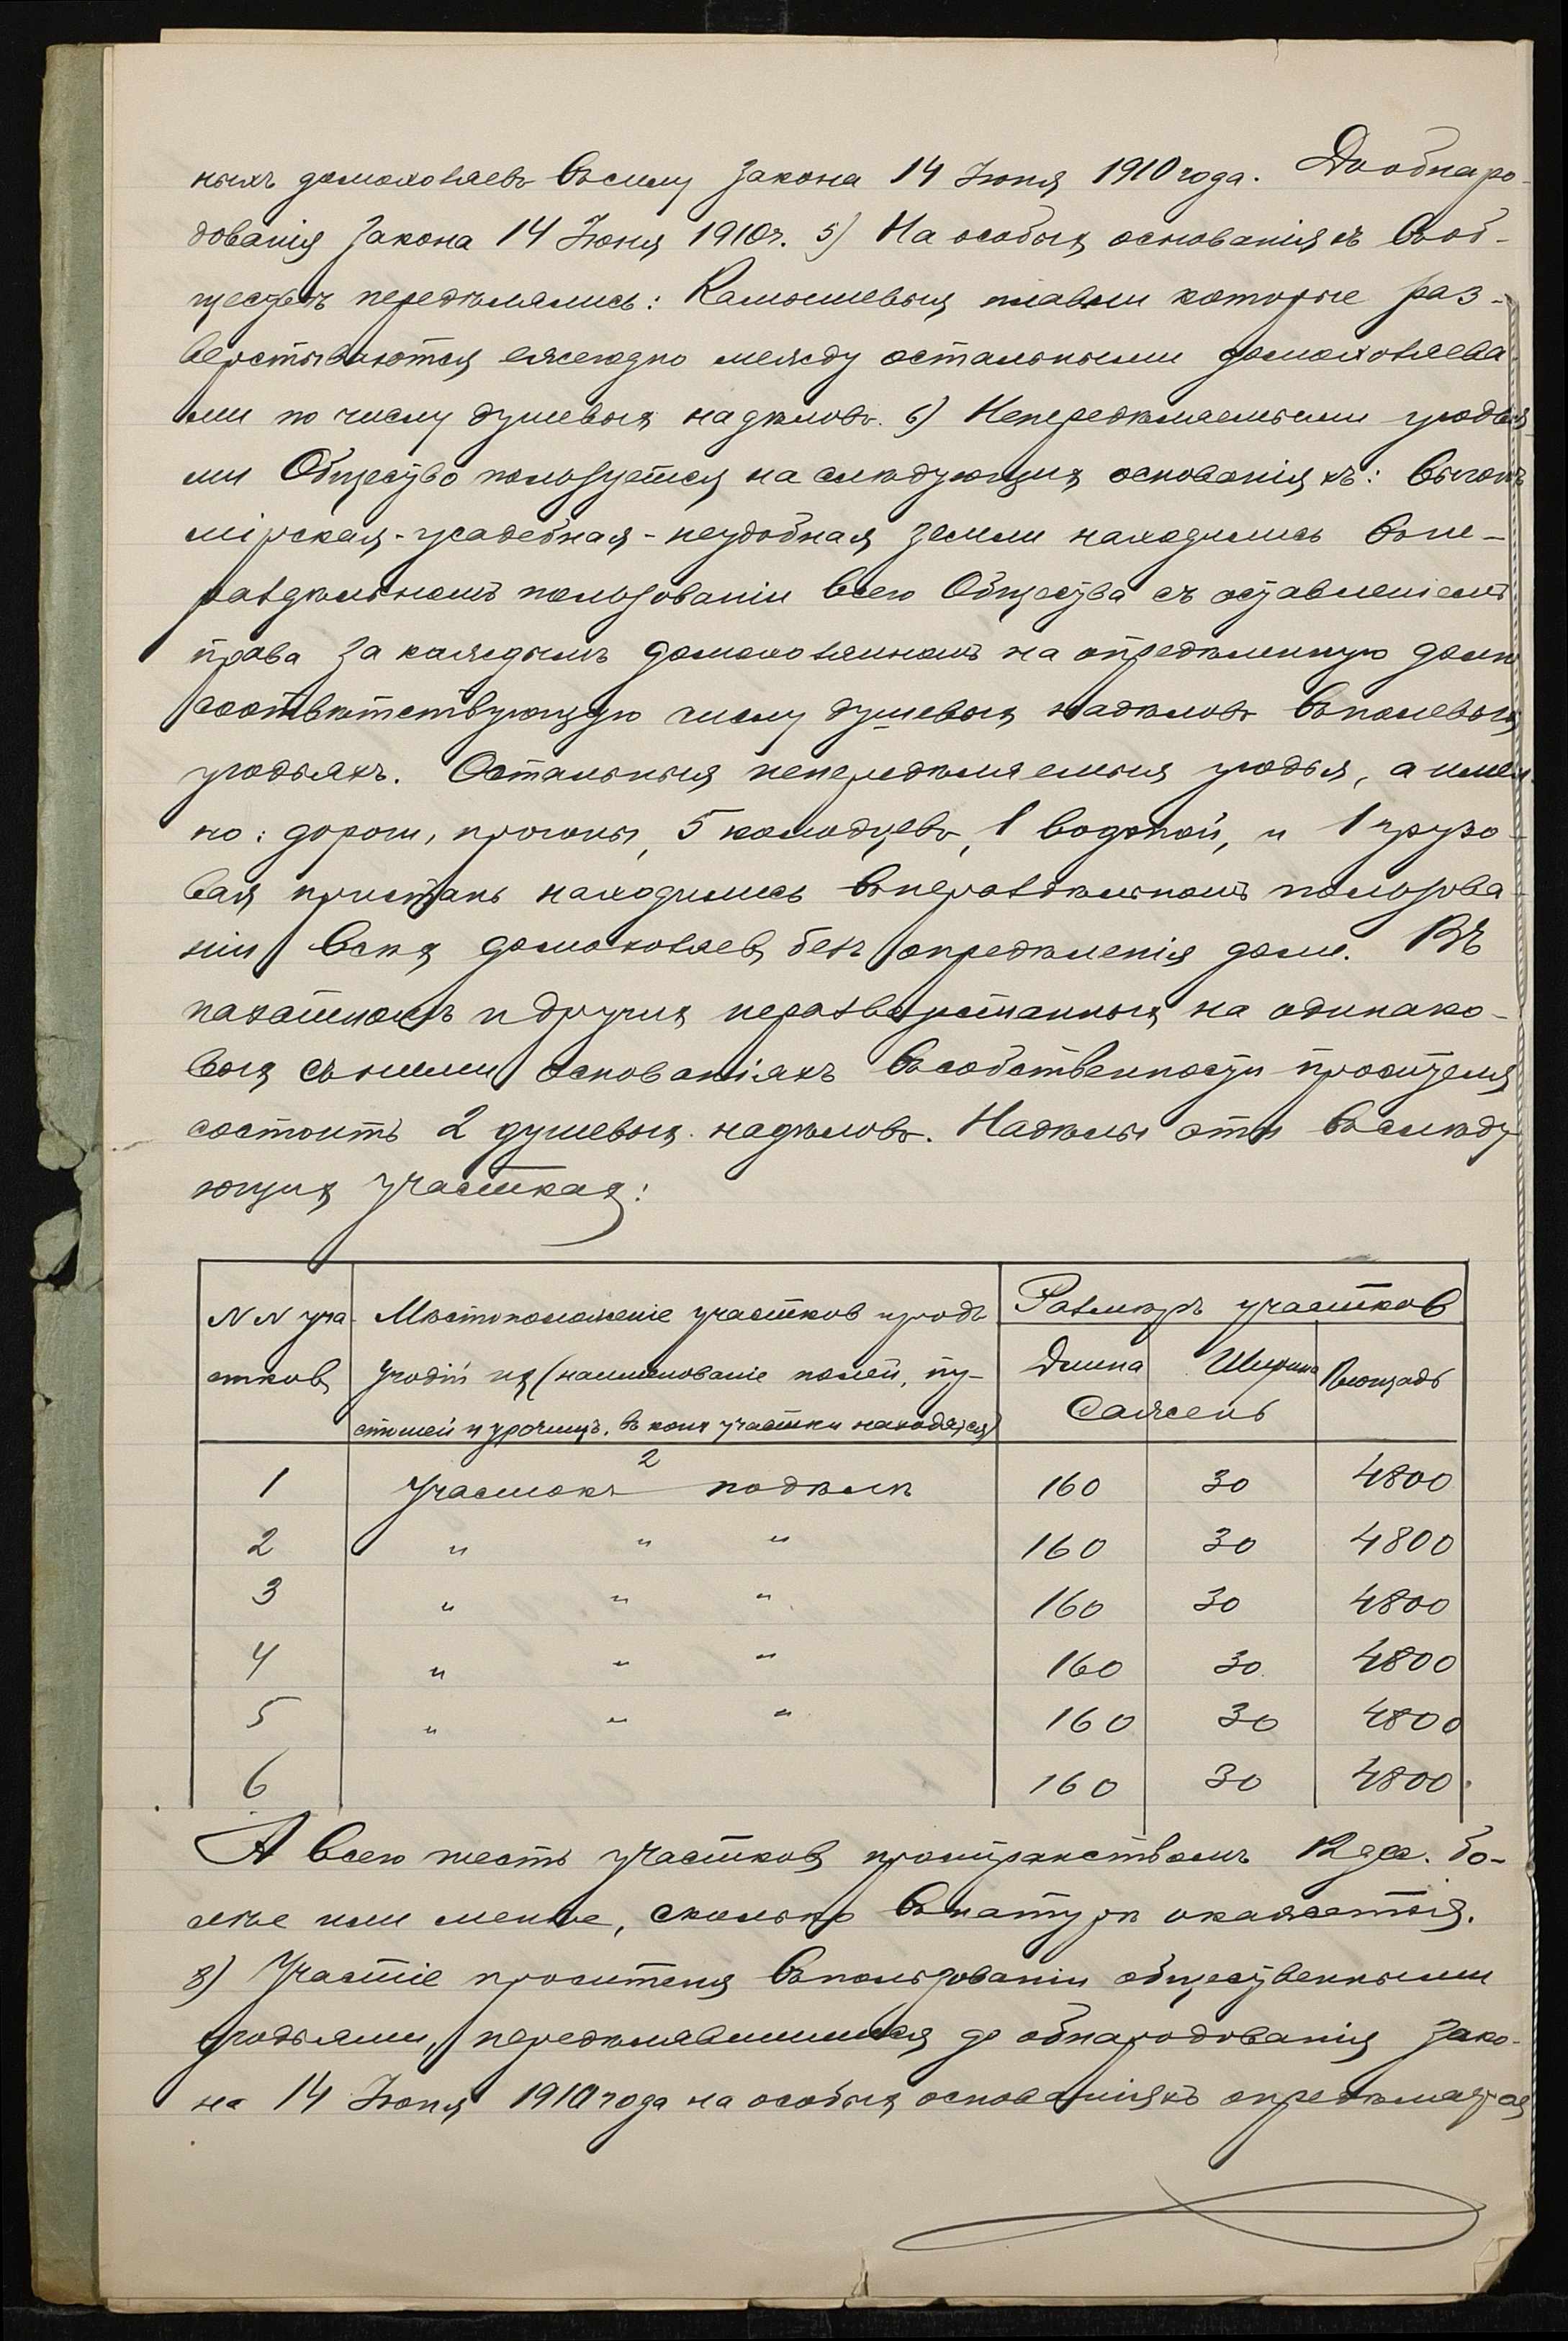 ныхъ домохозяевъ въ силу закона 14 Іюня 1910 года. До обнаро-
дованія Закона 14 Іюня 1910 г. 5) На особыхъ основаніяхъ въ об-
ществѣ передѣлялись: Камышевыя плавни которые раз-
верстываются ежегодно между остальными домохозяева-
ми по числу душевыхъ надѣловъ. 6) Непередѣляемыми угодья-
ми Общество пользуется на слѣдующихъ основаніяхъ: выгонъ
мірская-усадебная-неудобная земли находились въ не-
раздѣльномъ пользованіи всего Общества съ оставленіемъ
права за каждымъ домохозяиномъ на опредѣленную долю
соотвѣтствующую числу душевыхъ надѣловъ въ полевыхъ
угодьяхъ. Остальныя непередѣляемыя угодья, а имен-
но: дороги, прогоны, 5 колодцевъ, 1 водопой, и 1 грузо-
вая пристань находились въ нераздѣльномъ пользова-
ніи всѣхъ домохозяевъ безъ опредѣленія доли. Въ
пахатномъ и другихъ неразверстанныхъ на одинако-
выхъ съ ними основаніяхъ въ собственности просителя
состоитъ 2 душевыхъ надѣловъ. Надѣлы эти въ слѣду-
ющихъ участкахъ:
N N уча-
стковъ
Мѣстоположеніе участковъ и родъ
угодій ихъ (наименованіе полей, пу-
стошей и урочищъ, въ коихъ участки находятся)
Размѣръ участковъ
Длина Ширина Площадь
Сажень
1 Участокъ 2 надѣлъ 160 30 4800
2 " " " 160 30 4800
3 " " " 160 30 4800
4 " " " 160 30 4800
5 " " " 160 30 4800
6 160 30 4800
А всего шесть участковъ пространствомъ 12 дес. бо-
лѣе или менѣе, сколько въ натурѣ окажется.
8) Участіе просителя въ пользованіи общественными
угодьями, передѣлявшимися до обнародованія зако-
на 14 Іюня 1910 года на особыхъ основаніяхъ опредѣляется